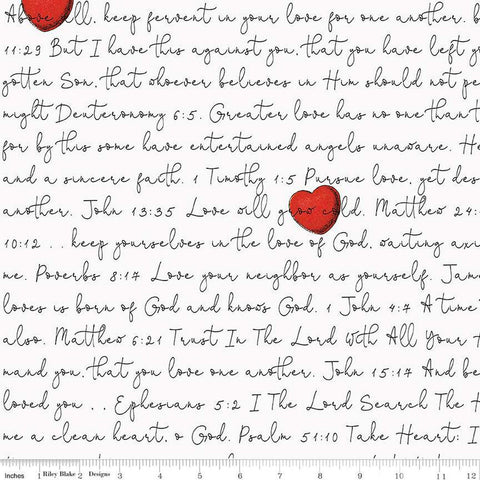 Above all, keep fervent in your love for one another.
11:29 But I have this against you, that you have left
gotten Son, that whoever believes in Him should not
might Deuteronomy 6:5. Greater love has no one than
for by this some have entertained angels unaware.
and a sincere faith. 1 Timothy 1:5 Pursue love, yet
another. John 13:35 Love will grow cold. Matthew 24:
10:12 .. keep yourselves in the love of God, waiting
me. Poverbs 8:17 Love your neighbor as yourself.
loves is born of God and knows God. 1 John 4:7 A time
also. Matthew 6:21 Trust In The Lord With All Your
mand you, that you love one another. John 15:17 And
loved you .. Ephesians 5:2 I The Lord Search The
me a clean heart, o God. Psalm 51:10 Take Heart: I
inches 1 Riley Blake 2 Designs 3 4 5 6 7 8 9 10 11 12